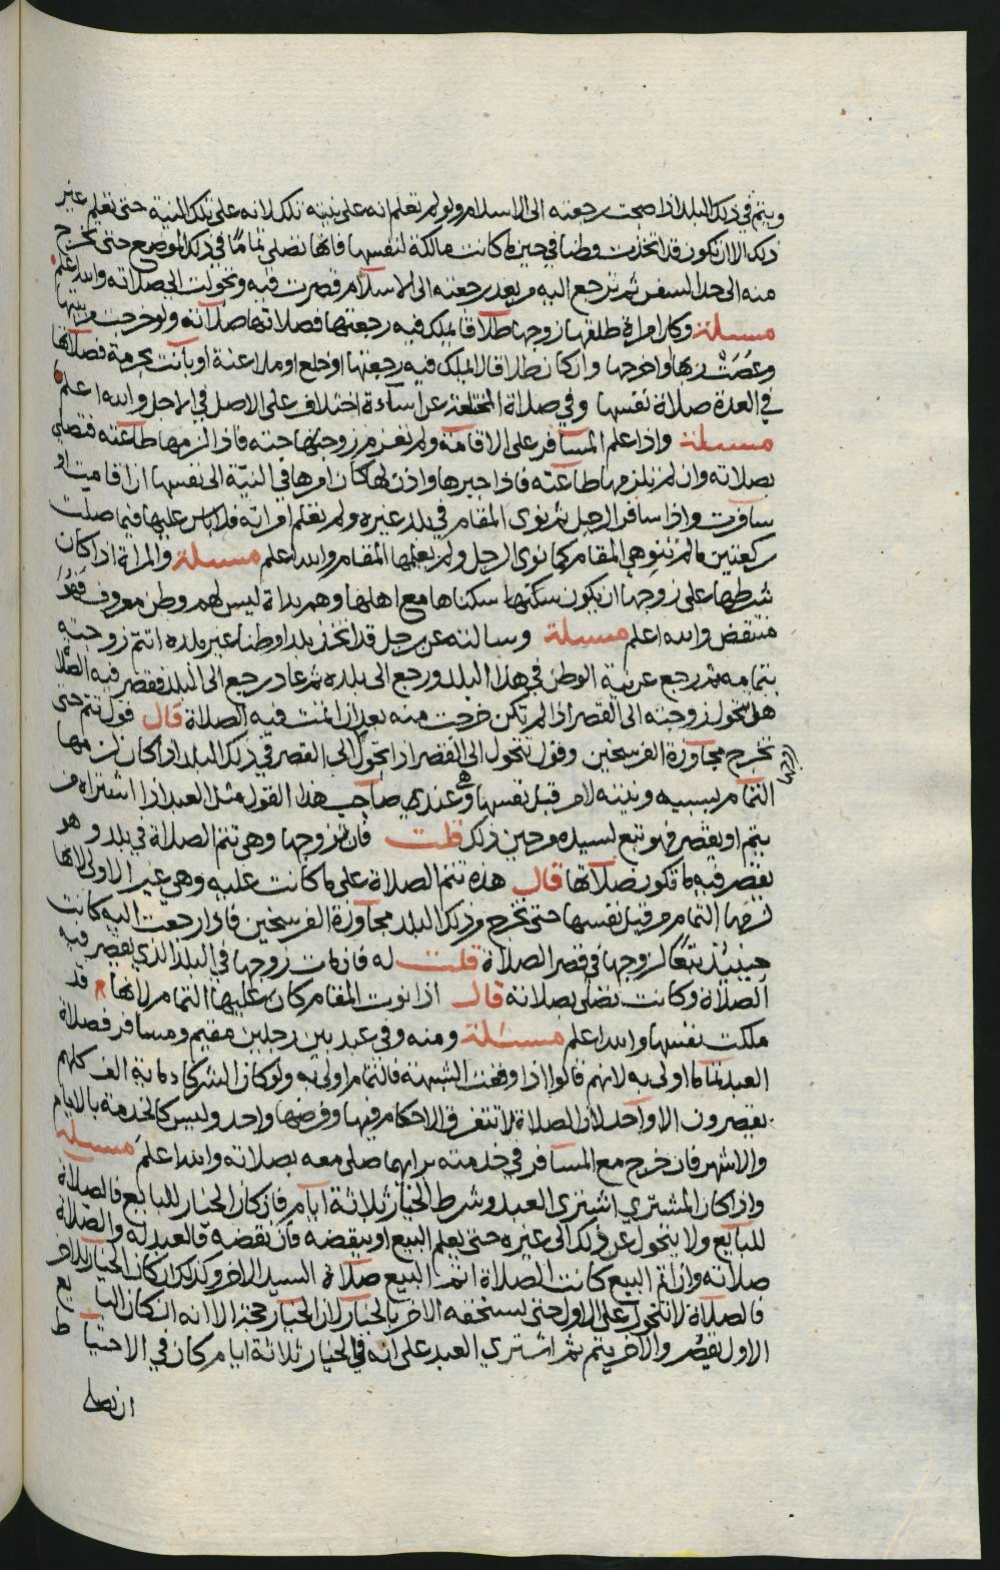 ويتم في ذلك البلد اذا صحت رجعته الى الاسلام ولو لم تعلم انه على نيته تلك لانه على تلك النية حتى تعلم غير
ذلك الا ان تكون قد اتخذت وطنا في حين ما كانت مالكة لنفسها فانها تصلي تماما في ذلك الموضع حتى تخرج
منه الى حد السفر ثم ترجع اليه من بعد رجعته الى الاسلام قصرت فيه وتحولت الى صلاته والله اعلم
مسئلة وكل امراة طلقها زوجها طلاقا يملك فيه رجعتها فصلاتها صلاته ولو خرجت من بيتها
وعصت ربها واخرجها وان كان طلاقا لا يملك فيه رجعتها او خلع او ملاعنة او بانت بحرمة فصلاتها
في العدة صلاة نفسها وفي صلاة المختلعة عن اساءة اختلاف على الاصل في الاجل والله اعلم
مسئلة واذا علم المسافر على الاقامة ولم تغرم زوجها حبه فاذا الزمها طاعته فتصلي
بصلاته وان لم يلزمها طاعته فاذا جبرها واذن لها كان امرها في النية الى نفسها ان اقامت او
سافرت واذا سافر الرجل ثم نوى المقام في بلد غيره ولم تعلم امراته فلا باس عليها فيما صلت
ركعتين ما لم تنو هي المقام كما نوى الرجل ولم يعلمها المقام والله اعلم مسئلة والمراة اذا كان
شرطها على زوجها ان يكون سكنها سكناها مع اهلها وهم بداة ليس لهم وطن معروف فهذا
منتقض والله اعلم مسئلة وسالته عن رجل قد اتخذ بلدا وطنا غير بلده اتتم زوجته
بتمامه ثم رجع عن نية الوطن في هذا البلد ورجع الى بلده ثم عاد رجع الى البلد فقصر فيه الصلاة
هل تتحول زوجته الى القصر اذا لم تكن خرجت منه بعد ان اتمت فيه الصلاة قال قول تتم حتى
تخرج مجاوزة الفرسخين وقول تتحول الى القصر اذا تحول الى القصر في ذلك البلد اذا كان لزمها
التمام بسببه ونيته لا من قبل نفسها وعندي صاحب هذا القول مثل العبد اذا اشتراه من
يتم او يقصر فهو تبع لسيده من حين ذلك قلت فان تزوجها وهي تتم الصلاة في بلد وهو
يقصر فيه ما تكون صلاتها قال هذه تتم الصلاة على ما كانت عليه وهي غير الاولى لانها
لزمها التمام من قبل نفسها حتى تخرج من ذلك البلد مجاوزة الفرسخين فاذا رجعت اليه كانت
حينئذ تبعا لزوجها في قصر الصلاة قلت له فان مات زوجها في البلد الذي يقصر فيه
الصلاة وكانت تصلي بصلاته قال اذا نوت المقام كان عليها التمام لانها قد
ملكت نفسها والله اعلم مسئلة ومنه وفي عبد بين رجلين مقيم ومسافر فصلاة
العبد تماما اولى به لانهم قالوا اذا وقعت الشبهة فالتمام اولى به ولو كان الشركاء مائة الف كلهم
يقصرون الا واحد لان الصلاة لا تتفرق الاحكام فيها وفرضها واحد وليس كالخدمة بالايام
والاشهر فان خرج مع المسافر في خدمته برايهما صلى معه بصلاته والله اعلم مسئلة
واذا كان المشتري اشترى العبد وشرط الخيار ثلاثة ايام فان كان الخيار للبايع فالصلاة
للبايع ولا يتحول عن ذلك الى غيره حتى يعلم البيع او ينقضه فان نقضه فالعبد له والصلاة
صلاته وان اتم البيع كانت الصلاة اتم البيع صلاة السيد الاخر وكذلك ان كان الخيار للاخر
فالصلاة لا تتحول على الاول حتى يستحقه الاخر بالخيار لان الخيار حجة الا انه ان كان البايع
الاول يقصر والاخر يتم ثم اشتري العبد على انه في الخيار ثلاثة ايام كان في الاحتياط
ان يصلي